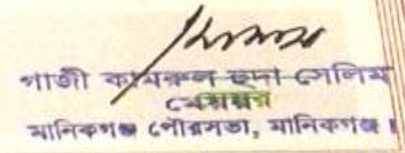 গাজী কামরুল হুদা সেলিম
মেয়র
মানিকগঞ্জ পৌরসভা, মানিকগঞ্জ।